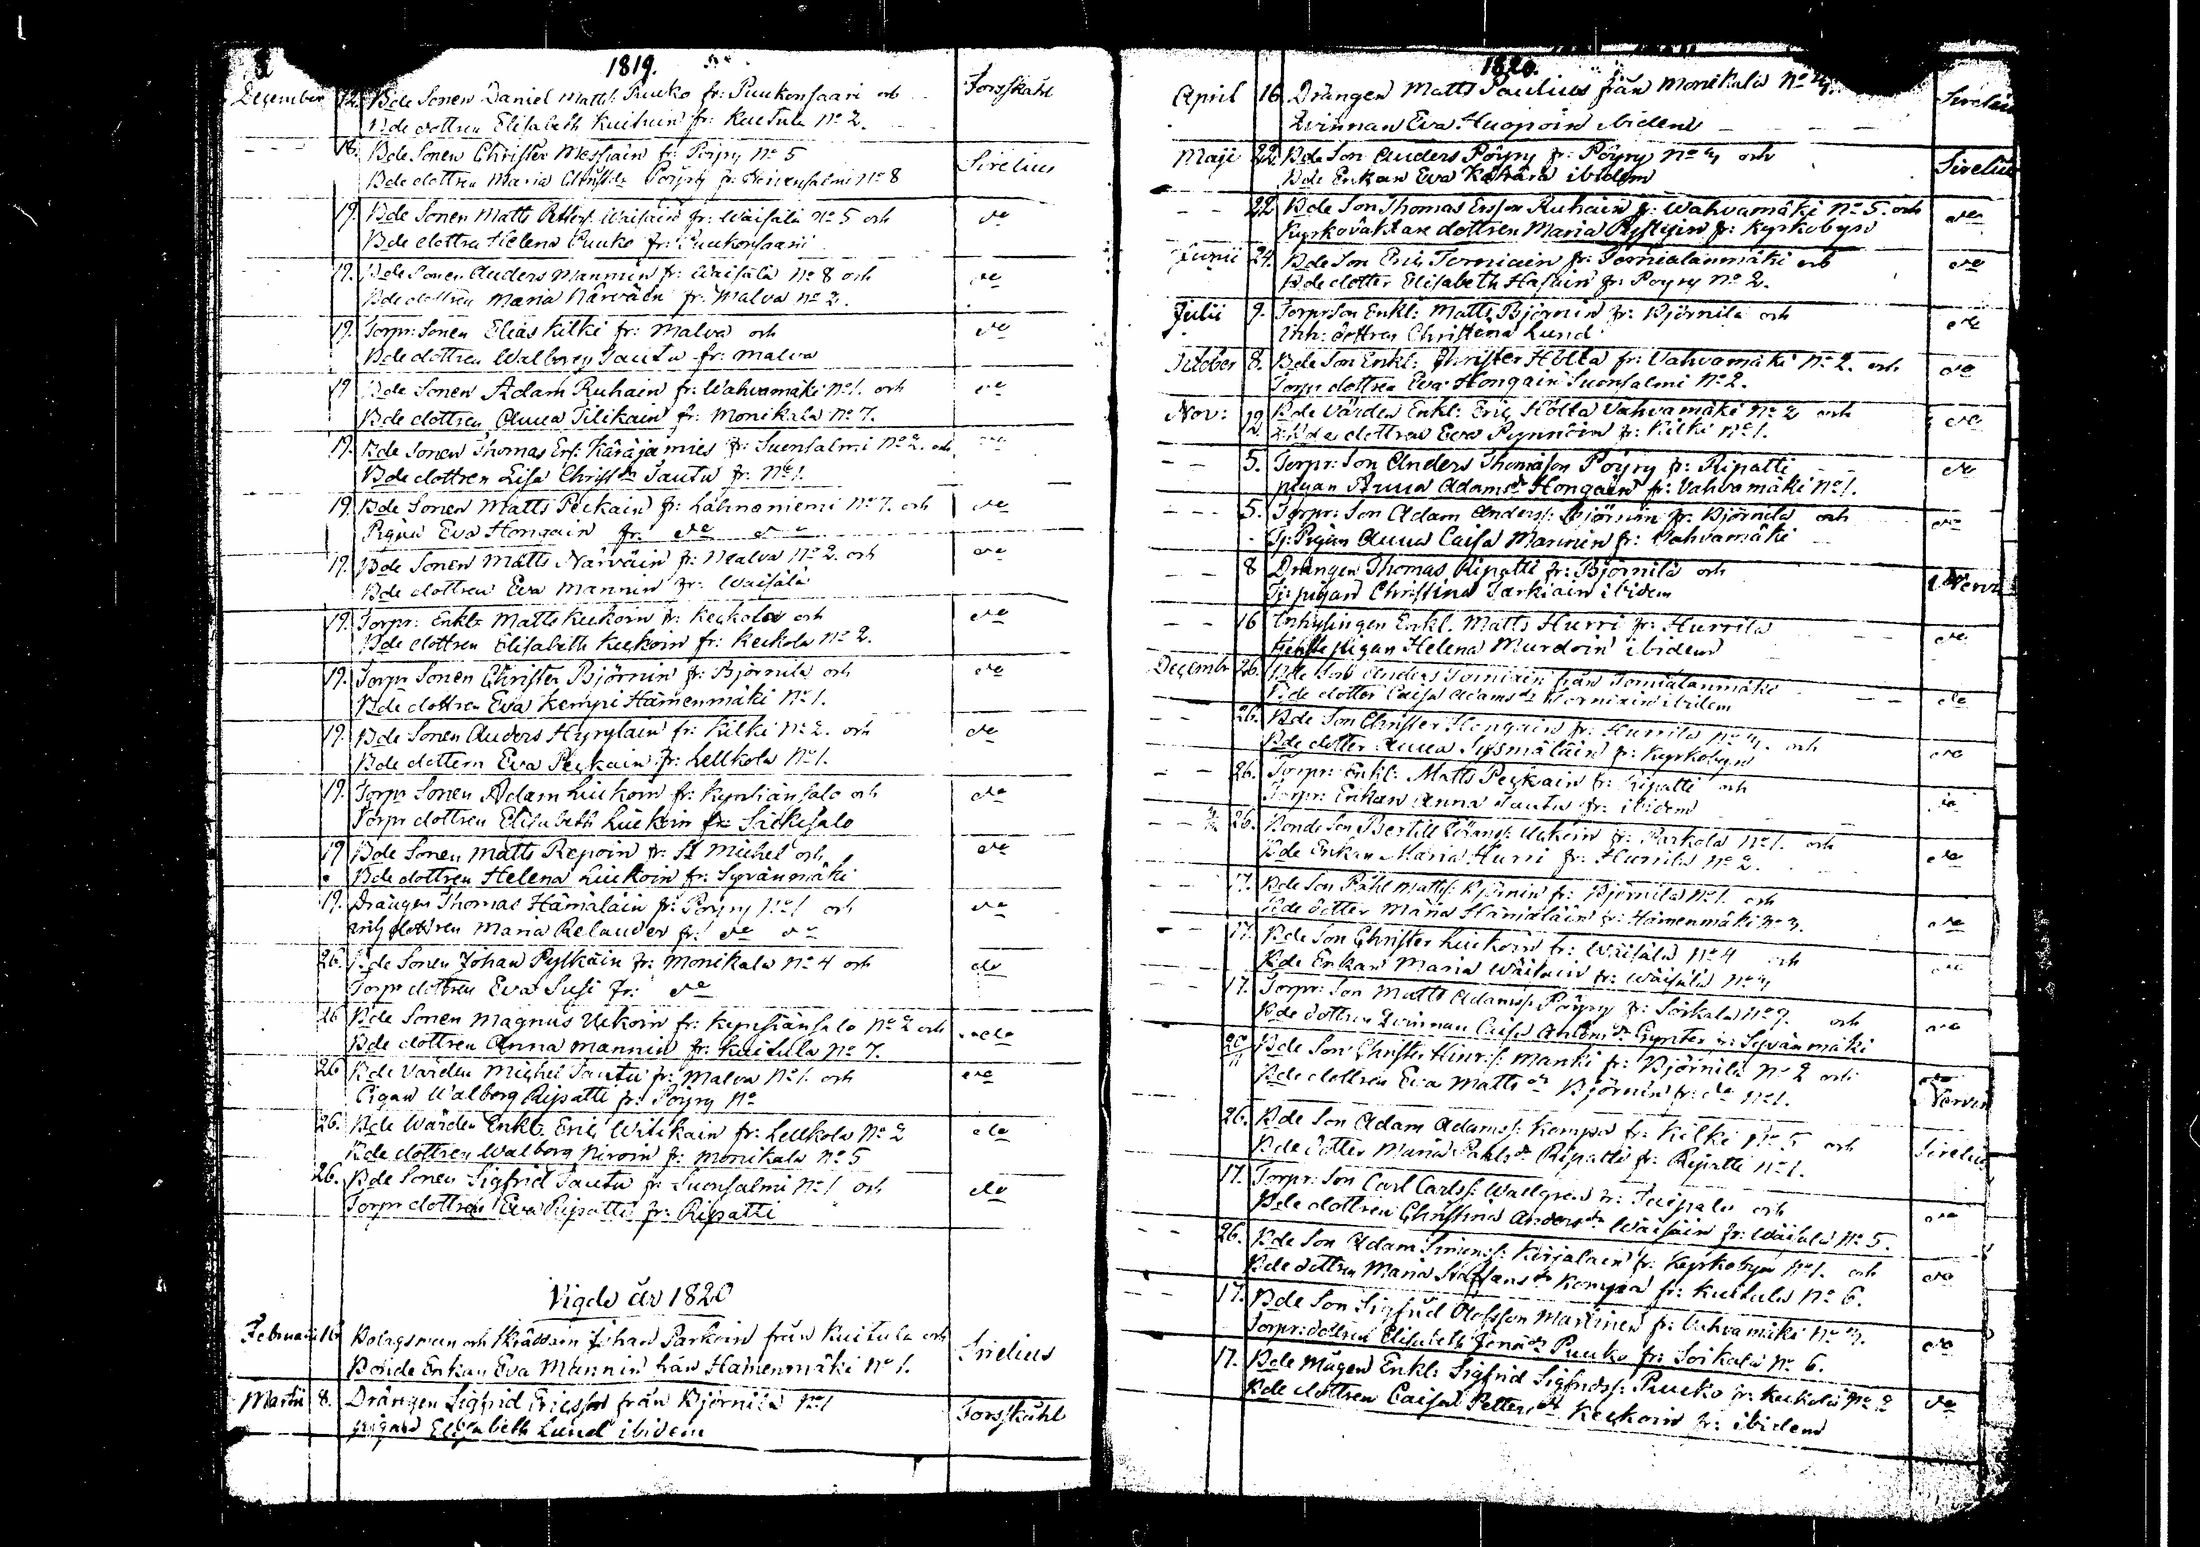 1819.
December 12. Bde Sonen Daniel Matts: Puuko fr: Puukonsaari och Forsskåhl
Bde dottren Elisabeth Kuitunin fr: Kuitula No 2.
18. Bde Sonen Christer Messiäin fr: Pöyry No 5
Bde dottren Maria Pöyry fr: No 8 Sirelius
19. Bde Sonen Matts Waisäin fr: Waisälä No 5 och do
Bde dottren Helena Puuko fr: Puukonsaari
19. Bde Sonen Anders Mannin fr: Waisälä No 8 och do
Bde dottren Maria Närväin fr: Malva No 2.
19. Torpr: Sonen Elias Kilki fr: Malva och do
Bde dottren Walborg Tautu fr: Malva
19 Bde Sonen Adam Ruhain fr: Wahvamäki No 1. och do
Bde dottren Anna Tilikain fr: Monikala No 7.
19. Bde Sonen Thomas Ers: Käräjämies fr: Suonsalmi No 2. och do
Bde dottren Lisa Christdr Tautu fr: No 1.
19. Bde Sonen Matts Peckain fr: Lahnaniemi No 7. och do
Pigan Eva Hongain fr: do do
19. Bde Sonen Matts Närväin fr: Malva No 2. och do
Bde dottren Eva Mannin fr: Waisälä
19. Torpr: Enkl: Matts Keckoin fr: Keckola och do
Bde dottren Elisabeth Keckoin fr: Keckola No 2.
19. Torpr Sonen Christer Björnin fr: Björnilä och do
Bde dottren Eva Kempi Hämenmäki No 1.
19. Bde Sonen Anders Hyrylain fr: Kilki No 2. och do
Bde dottern Eva Peckain fr: Lellkola No 1.
19. Torpr Sonen Adam Liukoin fr: Kynsiänsalo och do
Torpr dottren Elisabeth Liukoin fr: Säckisalo
19 Bde Sonen Matts Repoin fr: St Michel och do
Bde dottren Helena Liukoin fr: Syvänmäki
19. Drängen Thomas Hämäläin fr: Pöyry No 1 och do
inh dottren Maria Relander fr: do do
26. Bde Sonen Johan Pylkäin fr: Monikala No 4 och do
Torpr dottren Eva Susi fr: do
26 Bde Sonen Magnus Uckoin fr: Kynsiänsalo No 2 och do
Bde dottren Anna Mannin fr: Kuitula No 7.
26 Bde Värden Michel Tautu fr: Malva No 1. och do
Pigan Walborg Ripatti fr: Pöyry No
26. Bde Wärden Enkl. Eric Wilikain fr: Lellkola No 2 do
Bde dottren Walborg Niroin fr: Monikala No 5
26. Bde Sonen Sigfrid Tautu fr: Suonsalmi No 1 och do
Torpr dottren Eva Ripatti fr: Ripatti
Vigde år 1820
Februarii Bolagsman och Skräddarn Johan Parkoin från Kuitula och Sirelius
Bonde Enkan Eva Mannin från Hämenmäki No 1.
Martii 8. Drängen Sigfrid Ericsson från Björnilä No 1 Forsskåhl
pigan Elisabeth Lund ibidem
1820.
April 16. Drängen Matts Paulius från Monikala No 4. Sirelius
Qvinnan Eva Huopoin ibidem
Maji 22. Bde Son Anders Pöyry fr: Pöyry No 4 och Sirelius
Bde Enkan Eva Kährä ibidem
22 Bde Son Thomas Ersson Ruhain fr: Wahvamäki No 5. och do
Kyrkovaktare dottren Maria fr: Kyrkobyn
Junii 24. Bde Son Eric Torniain fr: Tornialanmäki och do
Bde dotter Elisabeth Hasuin fr: Pöyry No 2.
Julii 9. Torpr Son Enkl: Matts Björnin fr: Björnilä och do
Inh: dottren Christina Lund
October 8. Bde Son Enkl: Christer Hölta fr: Vahvamäki No 2. och do
Torpr dottren Eva Hongain Suonsalmi No 2.
Nov: 12 Bde Värden Enkl: Eric Hölta Vahvamäki No 2 och do
Bde dottren Eva Pynnöin fr: Kilki No 1.
5. Torpr: Son Anders Thomasson Pöyry fr: Ripatti do
pigan Anna Adamsdr Hongain fr: Vahvamäki No 1.
5. Torpr: Son Adam Anderss: Björnin fr: Björnilä och do
Tj: Pigan Anna Caisa Mannin fr: Vahvamäki
8 Drängen Thomas Ripatti fr: Björnilä och
Tj: pigan Christina Tarkiain ibidem
16 Inhysingen Enkl. Matts Hurri fr: Hurrila do
pigan Helena Murdoin ibidem
Decembr 26. Bde Son Anders Torniain från Tornialanmäki
Bde dotter Caisa Adamsdr Torniain ibidem do
26. Bde Son Christer Hongain fr: Hurrila No 4. och
Bde dotter Anna Sysmäläin fr: Kyrkobyn do
26. Torpr: Enkl. Matts Peckain fr: Ripatti och
Torpr: Enkan Anna Tautu fr: ibidem do
26. Bonde Son Bertill Uckoin fr: Parkola No 1. och
Bde Enkan Maria Hurri fr: Hurrila No 2. do
17. Bde Son Påhl Matts: Björnin fr: Björnilä No 1. och
Bde dotter Maria Hämäläin fr: Hämenmäki No 3. do
17. Bde Son Christer Liukoin fr: Wäisälä No 4 och
Bde Enkan Maria Wäisäin fr: Wäisälä No 4 do
17. Torpr: Son Matts Adamss: Pöyry fr: Soikala No 9. och
Bde dottren Qvinnan Caisa Gynter fr: Syvänmäki do
Bde Son Christer Hinr:s: Manki fr: Björnilä No 2 och
Bde dottren Eva Mattsdr Björnin fr: do No 1.
26. Bde Son Adam Adamss: Kompa fr: Kilki No 5 och Sirelius
Bde dotter Maria Pahlsdr Ripatti fr: Ripatti No 1.
17. Torpr: Son Carl Carlss: Wallgren fr: Taipale och
Bde dottren Christina Andersdr Wäisäin fr: Wäisälä No 5. do
26. Bde Son Adam Simons: Kirjalain fr: Kyrkobyn No 1. och
Bde dottren Maria Staffansdr Kompa fr: Kuitula No 6. do
17. Bde Son Sigfrid Olofsson Martinen fr: Vahvamäki No 4.
Torpr: dottren Elisabeth Puuko fr: Soikala No 6. do
17. Bde Mågen Enkl: Sigfrid Sigfridss: Puuko fr: Keckola No 2 do
Bde dottren Caisa Pettersdr Keckoin fr: ibidem